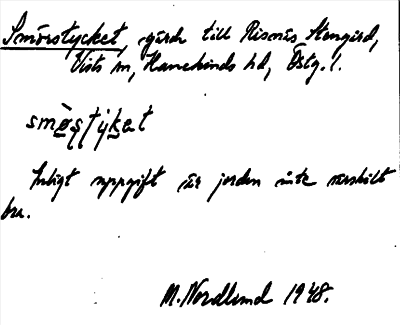 Smörstycket, gärde till Risnäs Stengärd,
Vists sn, Hanekinds hd, Östg. l.
smø̀ştyket
Enligt uppgift är jorden inte särskilt
bra.
M. Nordlund 1948.